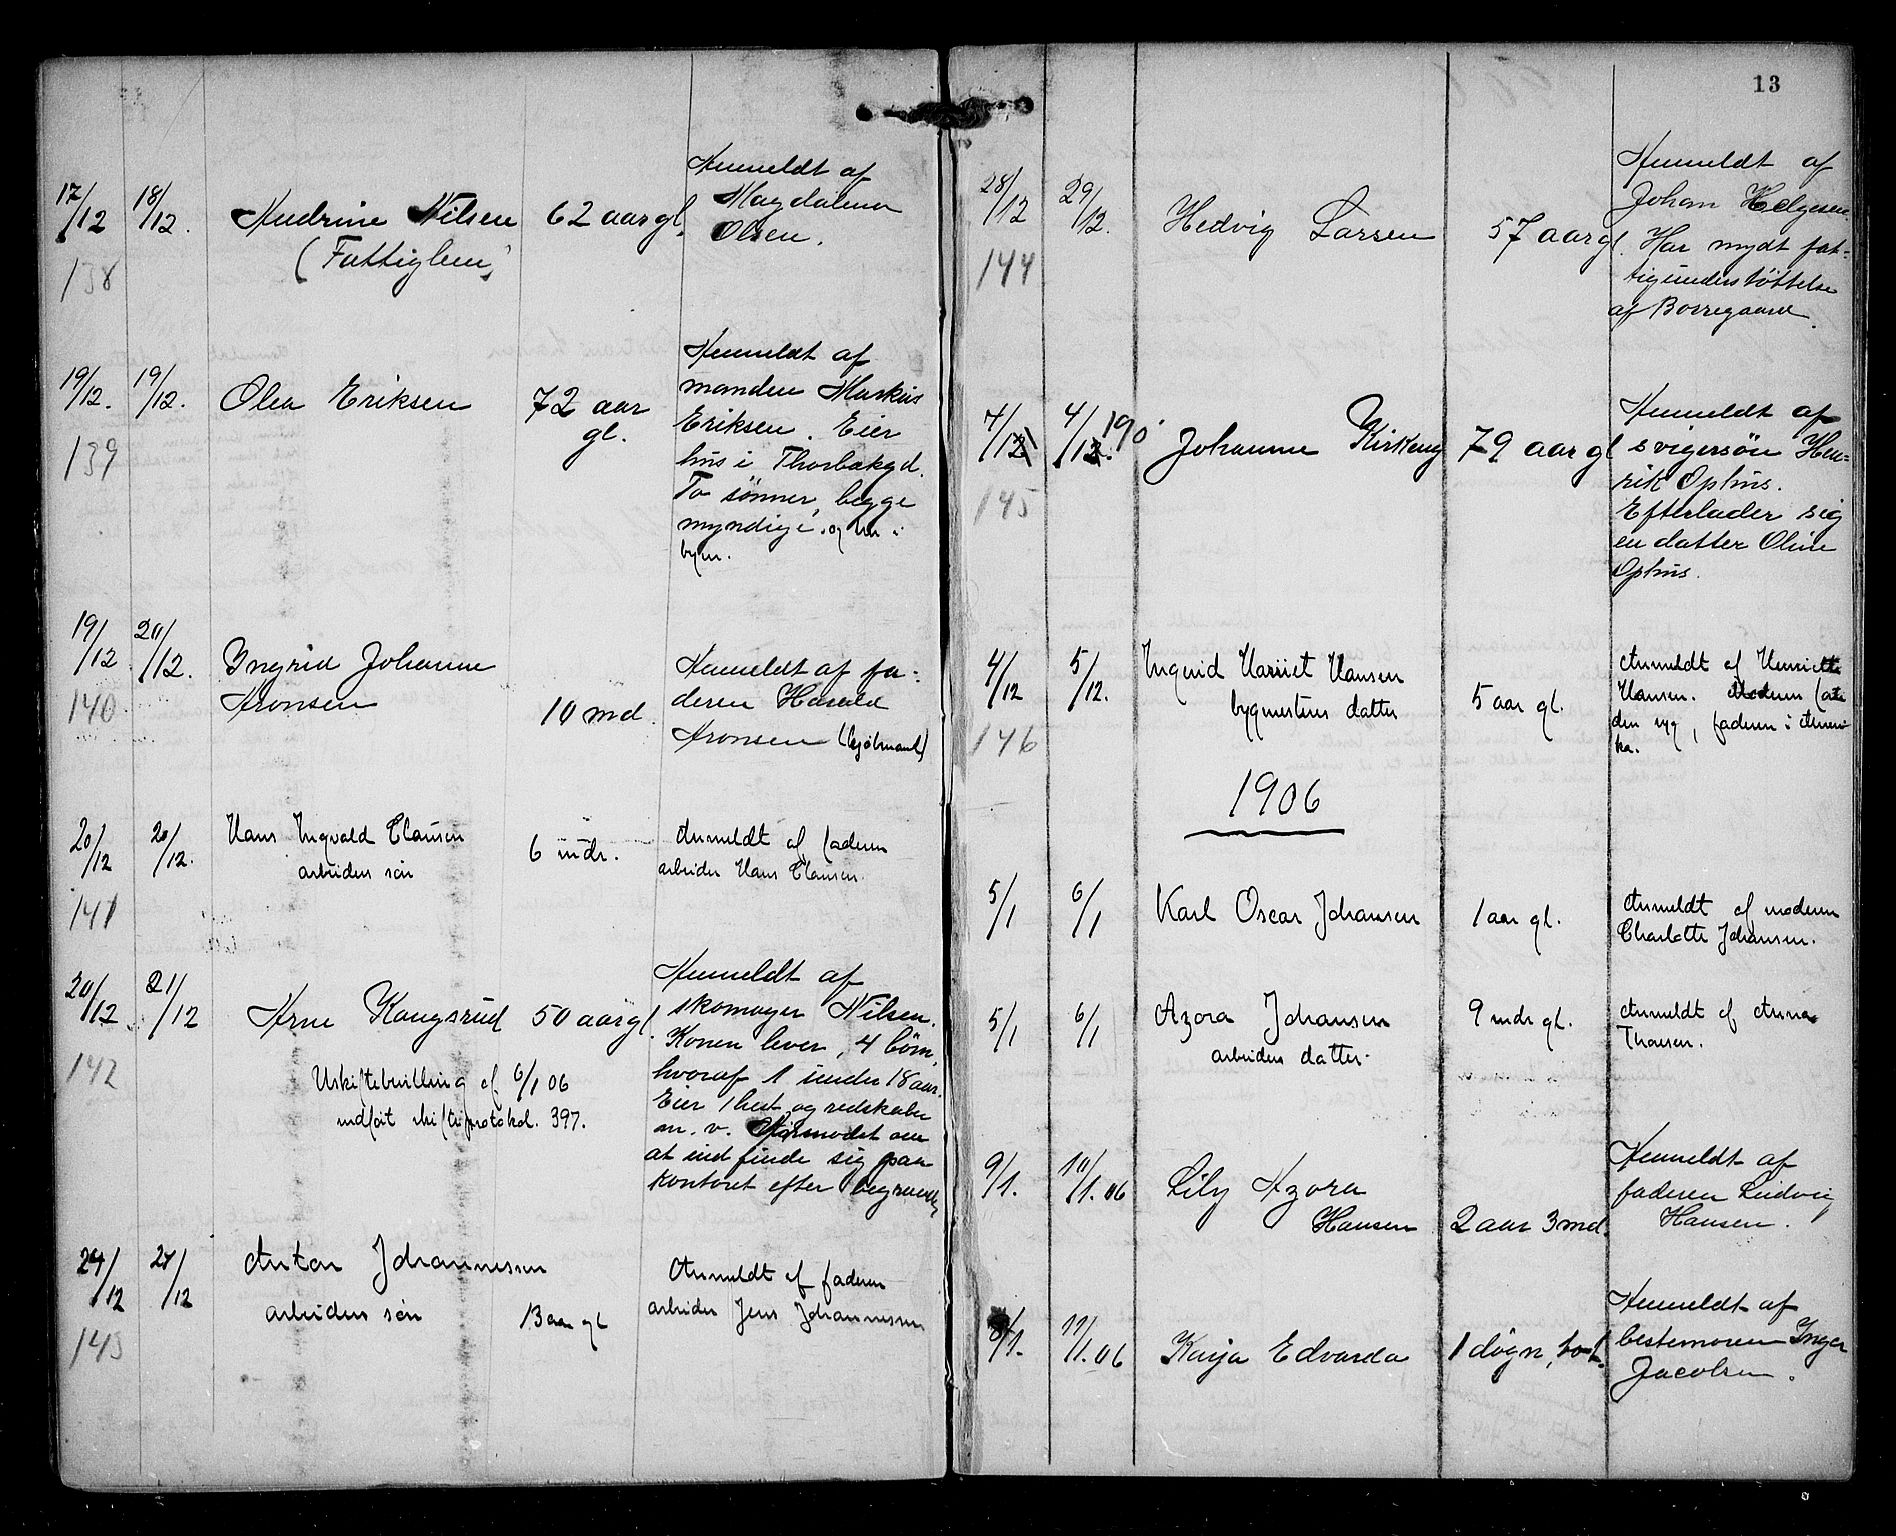 17/12 18/12. Andrine Nilsen 62 aar gl. Anmeldt af
Magdalena
(Fattiglem) Olsen.
138
19/12. 19/12. Olea Eriksen 72 aar gl. Anmeldt af
manden Markus
Eriksen. Eier
139 hus i Thorbakgd.
To sønner, begge
myndige, og her i
byen.
19/12 20/12. Ingrid Johanne
Aronsen 10 md. Anmeldt af fa-
deren Harald
140 Aronsen (kjøbmand)
20/12 20/12. Hans Ingvald Clausen 6 mdr. Anmeldt af faderen
arbeiders søn arbeider Hans Clausen.
141
20/12. 21/12 Arne Kongsrud 50 aar gl. Anmeldt af
skomager Nilsen.
Konen lever, 4 børn,
142 hvoraf 1 under 18 aar.
Uskiftebevilling af 6/1 06 Eier 1 hest og redskaber
indført skifteprotokol. 397. m. v. Anmodet om
at indfinde sig paa
kontoret efter
24/12 27/12 Anton Johannessen
arbeiders søn 13 aar gl Anmeldt af faderen
arbeider Jens Johannessen
143
13
28/12 29/12. Hedvig Larsen 57 aar gl. Anmeldt af
Johan Helgesen.
144 Har nydt fat-
tigunderstøttelse
af Borregaard.
4/12 4/12. 190 Johanne Kirkeng 79 aar gl Anmeldt af
svigersøn Hen-
145 rik Ophus.
Efterlader sig
en datter Oline
Ophus.
4/12 5/12. Ingrid Harriet Hansen
bygmesters datter 5 aar gl. Anmeldt af Henriette
Hansen. Moderen
146 syg, faderen i Ameri-
ka.
1906
5/1 6/1 Karl Oscar Johansen 1 aar gl. Anmeldt af moderen
Charlotte Johansen.
5/1 6/1 Azora Johansen 9 mdr gl. Anmeldt af Anna
arbeiders datter.
9/1. 10/1. 06 Lily Azora
Hansen 2 aar 3 md. Anmeldt af
faderen Ludvig
Hansen.
8/1. 11/1. 06 Kaija Edvarda 1 døgn, Anmeldt af
bestemoren Inger
Jacobsen.